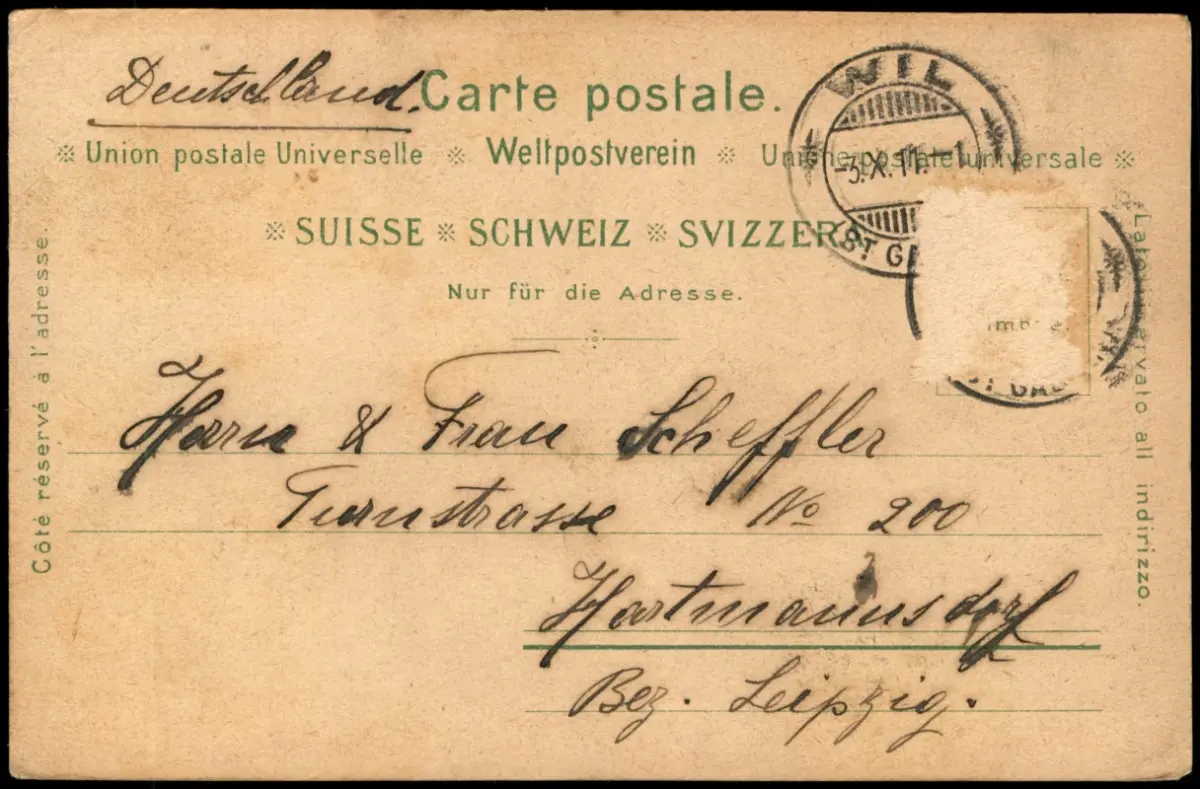 Deutschland.
Carte postale.
※ Union postale Universelle ※ Weltpostverein ※ Unione postale universale ※
※ SUISSE ※ SCHWEIZ ※ SVIZZER
Nur für die Adresse.
WIL
-3.X.11.-1
(ST GA
ST GAL
Côté réservé à l'adresse.
Lato ervato all indirizzo.
Herrn & Frau Scheffler
Turnstrasse No 200
Hartmannsdorf
Bez. Leipzig.